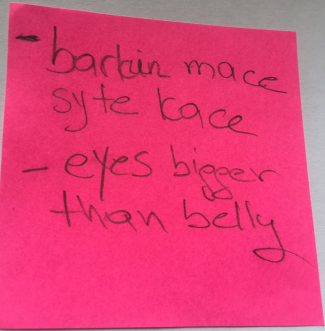 - barkin mace
syte kace
- eyes bigger
than belly